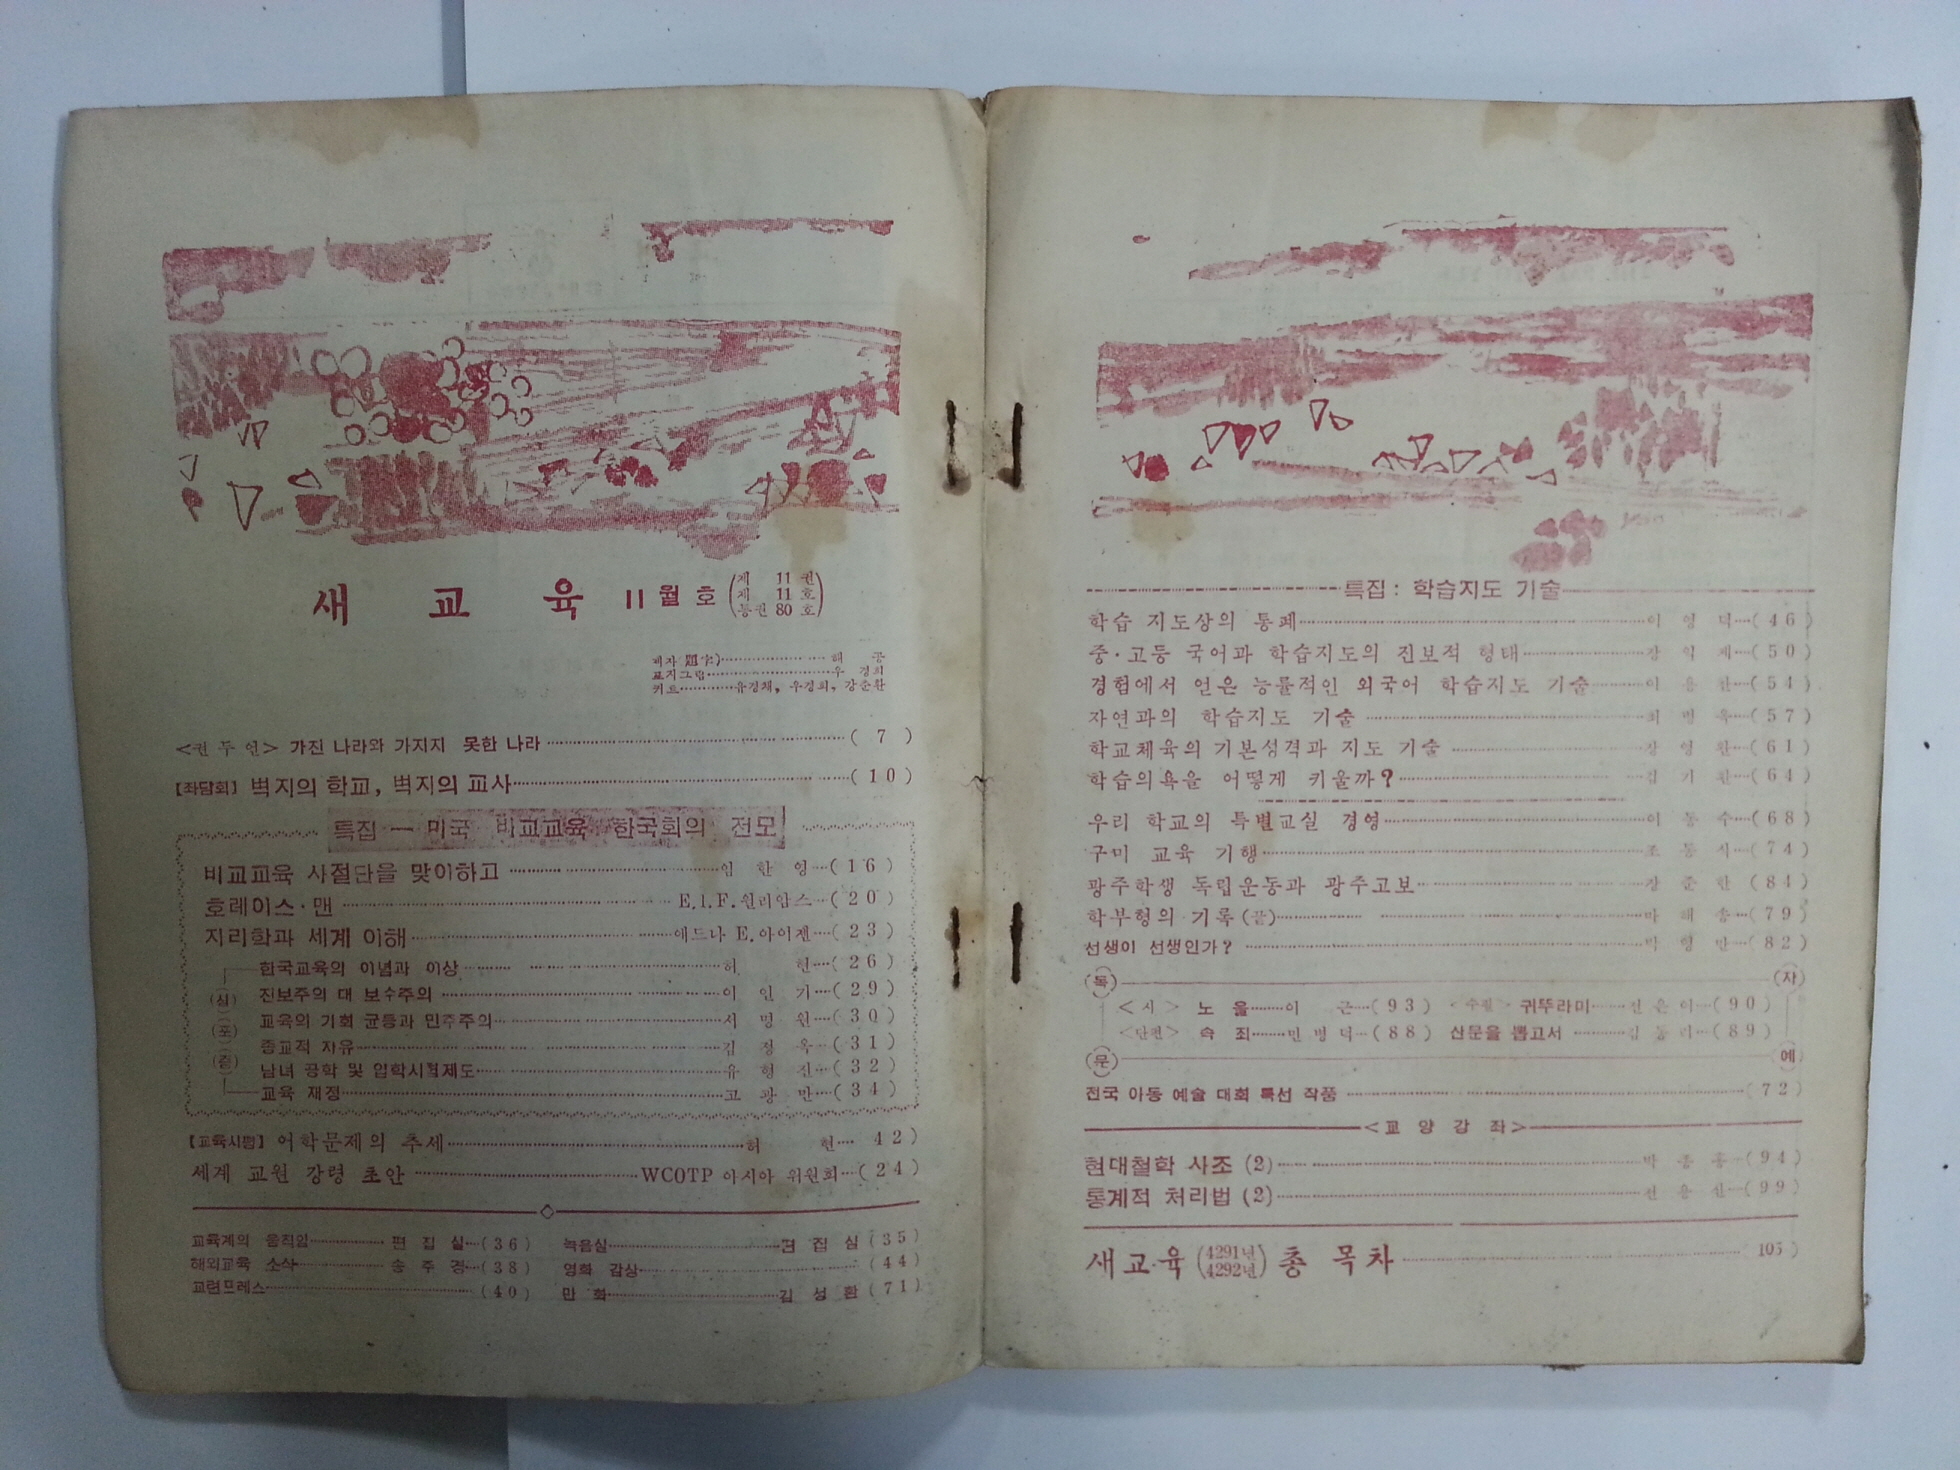 새 교 육 11월 호 (제 11 권 제 11 호 통권 80 호)
제자(題字)…해 공
표지그림…우 경희
커트…유경채, 우경희, 강순환
<권 두 언> 가진 나라와 가지지 못한 나라…( 7 )
[좌담회] 벽지의 학교, 벽지의 교사…(10)
특집 — 미국 비교교육 한국회의 전모
비교교육 사절단을 맞이하고…임 한 영…(16)
호레이스·맨…E.I.F.윌리암스…(20)
지리학과 세계 이해…에드나 E.아이젠…(23)
(심)(포)(쥼)
한국교육의 이념과 이상…허 현…(26)
진보주의 대 보수주의…이 인 기…(29)
교육의 기회 균등과 민주주의…서 명 원…(30)
종교적 자유…김 정 옥…(31)
남녀 공학 및 입학시험제도…유 형 진…(32)
교육 재정…고 광 만…(34)
[교육시평] 어학문제의 추세…허 현… 42)
세계 교원 강령 초안…WCOTP 아시아 위원회…(24)
교육계의 움직임…편 집 실…(36) 녹음실…편 집 실(35)
해외교육 소식…송 주 경…(38) 영화 감상…(44)
교련프레스…(40) 만 화…김 성 환(71)
특집: 학습지도 기술
학습 지도상의 통폐…이 영 덕…(46)
중·고등 국어과 학습지도의 진보적 형태…(50)
경험에서 얻은 능률적인 외국어 학습지도 기술…(54)
자연과의 학습지도 기술…(57)
학교체육의 기본성격과 지도 기술…(61)
학습의욕을 어떻게 키울까?…(64)
우리 학교의 특별교실 경영…이 동 수…(68)
구미 교육 기행…(74)
광주학생 독립운동과 광주고보…장 준 한 (84)
학부형의 기록(끝)…마 해 송…(79)
선생이 선생인가?…(82)
(독)(자)
<시> 노 을…이 근…(93) <수필> 귀뚜라미…(90)
<단편> 속 죄…민 병 덕…(88) 산문을 뽑고서…김 동 리…(89)
(문)(예)
전국 아동 예술 대회 특선 작품…(72)
<교 양 강 좌>
현대철학 사조 (2)…박 종 홍…(94)
통계적 처리법 (2)…(99)
새교육 (4291년 4292년) 총 목차…105)